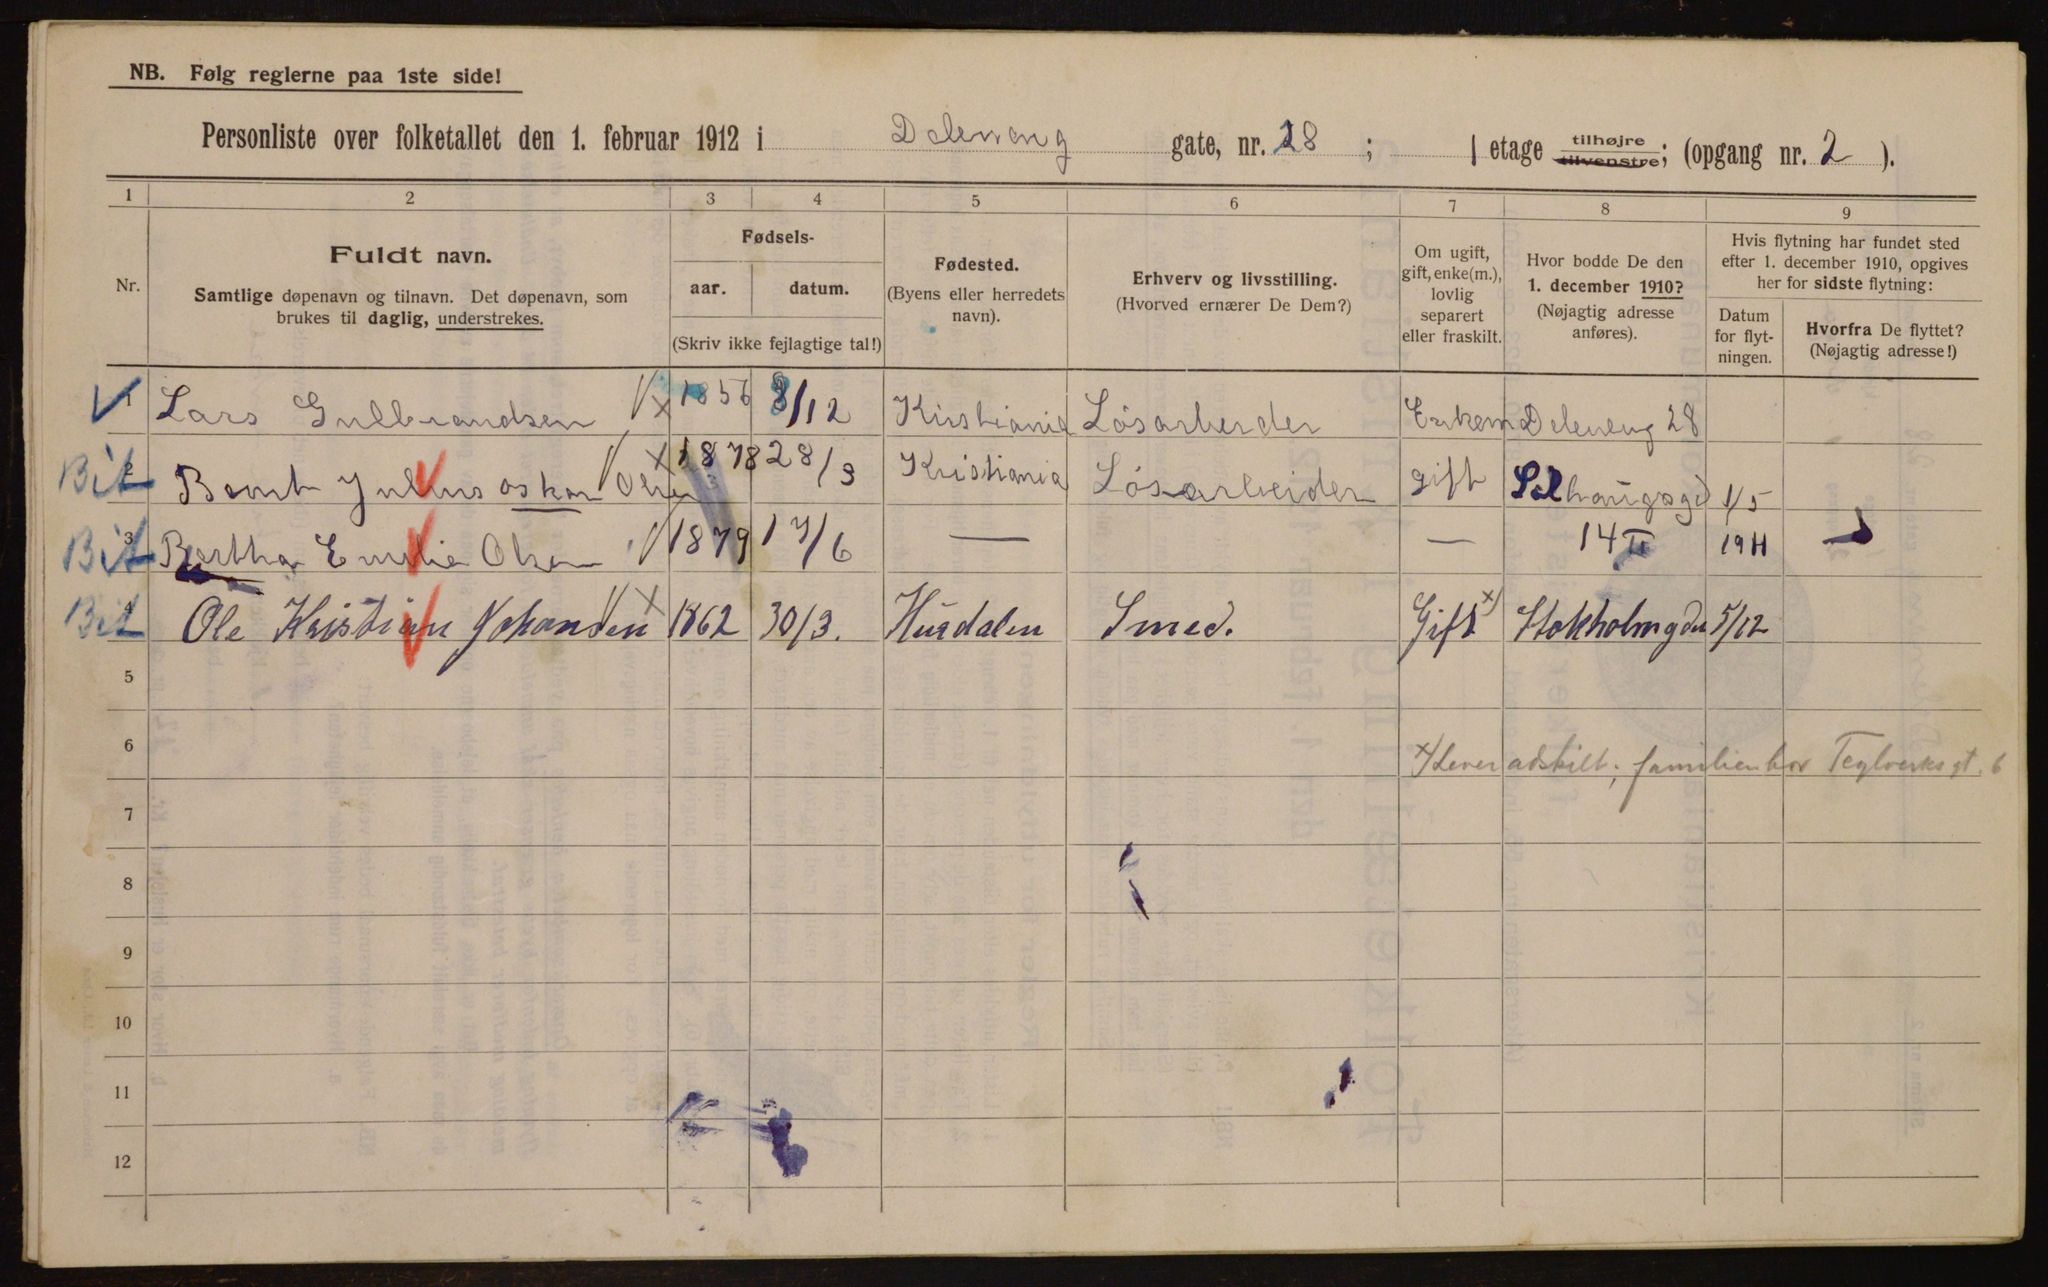 NB. Følg reglerne paa 1ste side!
Personliste over folketallet den 1. februar 1912 i Deleneng gate, nr. 28 ; 1 etage tilhøjre tilvenstre; (opgang nr. 2 ).
1 2 3 4 5 6 7 8 9
Nr.
Fuldt navn.
Samtlige døpenavn og tilnavn. Det døpenavn, som
brukes til daglig, understrekes.
Fødsels-
aar. datum.
(Skriv ikke fejlagtige tal!)
Fødested.
(Byens eller herredets
navn).
Erhverv og livsstilling.
(Hvorved ernærer De Dem?)
Om ugift,
gift, enke(m.),
lovlig
separert
eller fraskilt.
Hvor bodde De den
1. december 1910?
(Nøjagtig adresse
anføres).
Hvis flytning har fundet sted
efter 1. december 1910, opgives
her for sidste flytning:
Datum
for flyt-
ningen.
Hvorfra De flyttet?
(Nøjagtig adresse!)
1 Lars Gulbrandsen 1856 8/12 Kristiania Løsarbeider Enkem Deleneng 28
Bit 2 Bernt Julius Oskar Olsen 1878 28/3 Kristiania Løsarbeider gift Solhaugsgd 1/5
Bit 3 Bertha Emilie Olsen 1879 17/6 — — 14 II 1911
Bit 4 Ole Kristian Johansen 1862 30/3. Hurdalen Smed. Gift x) Stokholmgdn 5/12
5
6
x) Lever adskilt; familien bor Teglverksgt. 6
7
8
9
10
11
12